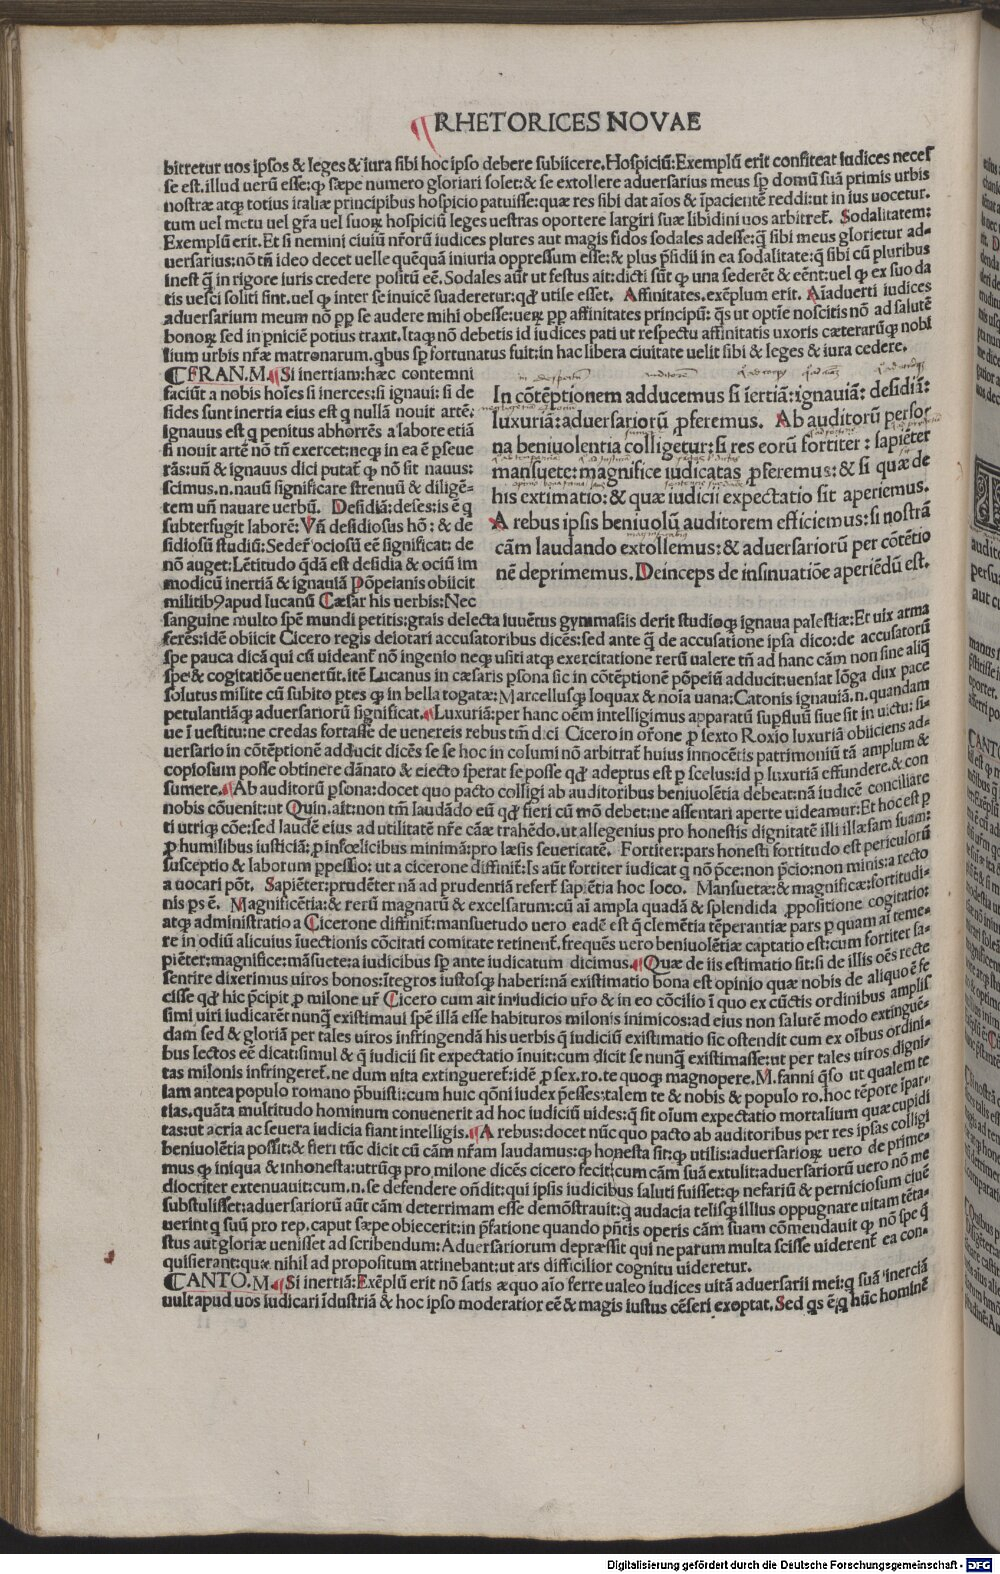 RHETORICES NOVAE
bitretur uos ipsos & leges & iura sibi hoc ipso debere subiicere. Hospiciū: Exemplū erit confiteat iudices necesſ
se est. illud uerū esse: ꝙ sæpe numero gloriari solet: & se extollere aduersarius meus sꝑ domū suā primis urbis
nostræ atqꝫ totius italiæ principibus hospicio patuisse: quæ res sibi dat aīos & īpacientē reddi: ut in ius uocetur.
tum uel metu uel gr̄a uel suoꝝ hospiciū leges uestras oportere largiri suæ libidini uos arbitret̄. Sodalitatem:
Exemplū erit. Et si nemini ciuiū nr̄orū iudices plures aut magis fidos sodales adesse: q̄ sibi meus glorietur ad-
uersarius: nō tn̄ ideo decet uelle quēquā iniuria oppressum esse: & plus p̄sidii in ea sodalitate: q̄ sibi cū pluribus
inest q̄ in rigore iuris credere positū eē. Sodales aūt ut festus ait: dicti sūt ꝙ una sederēt & eēnt: uel ꝙ ex suo da
tis uesci soliti sint. uel ꝙ inter se inuicē suaderetur: qd̄ utile esset. Affinitates. exēplum erit. Aīaduerti iudices
aduersarium meum nō ꝓp se audere mihi obesse: ueꝝ ꝓp affinitates principū: q̄s ut optie noscitis nō ad salutē
bonoꝝ sed in pniciē potius traxit. Itaqꝫ nō debetis id iudices pati ut respectu affinitatis uxoris cæterarūqꝫ nobi
lium urbis nr̄æ matronarum. qbus sꝑ fortunatus fuit: in hac libera ciuitate uelit sibi & leges & iura cedere.
FRAN. M. Si inertiam: hæc contemni
faciūt a nobis hoīes si inerces: si ignaui: si de
sides sunt inertia eius est q nullā nouit artē:
ignauus est q penitus abhorrēs a labore etiā
si nouit artē nō tn̄ exercet: neqꝫ in ea ē p̄seue
rās: un̄ & ignauus dici putat̄ ꝙ nō sit nauus:
scimus. n. nauū significare strenuū & diligē-
tem un̄ nauare uerbū. Desidiā: deses: is ē q
subterfugit laborē: Vn̄ desidiosus hō: & de
sidiosū studiū: Seder̄ ociosū eē significat: de
nō auget: Lētitudo qdā est desidia & ociū im
modicū inertiā & ignauiā Pōpeianis obiicit
militibꝰ apud lucanū Cæsar his uerbis: Nec
In cōtēptionem adducemus si īertiā: ignauiā: desidiā:
luxuriā: aduersariorū ꝓferemus. Ab auditorū perso
na beniuolentia colligetur: si res eorū fortiter: sapiēter
mansuete: magnifice iudicatas ꝓferemus: & si quæ de
his extimatio: & quæ iudicii expectatio sit aperiemus.
A rebus ipsis beniuolū auditorem efficiemus: si nostrā
cām laudando extollemus: & aduersariorū per cōtētio
nē deprimemus. Deinceps de insinuatiōe aperiēdū est.
sanguine multo spē mundi petitis: grais delecta iuuētus gymnasiis derit studioqꝫ ignaua palestiæ: Et uix arma
ferēs: idē obiicit Cicero regis deiotari accusatoribus dicēs: sed ante q̄ de accusatione ipsa dico: de accusatorū
spe pauca dicā qui cū uideant̄ nō ingenio neqꝫ usiti atqꝫ exercitatione rerū ualere tn̄ ad hanc cām non sine aliq̄
spe & cogitatiōe uenerūt. itē Lucanus in cæsaris psona sic in cōtēptionē pōpeiū adducit: ueniat lōga dux pace
solutus milite cū subito ptes q̄ in bella togatæ: Marcellusqꝫ loquax & noīa uana: Catonis ignauiā. n. quandam
petulantiāqꝫ aduersariorū significat. Luxuriā: per hanc oēm intelligimus apparatū supfluū siue sit in uictu: si-
ue ī uestitu: ne credas fortasse de uenereis rebus tm̄ dici Cicero in or̄one ꝓ sexto Roxio luxuriā obiiciens ad-
uersario in cōtēptionē adducit dicēs se se hoc in columi nō arbitrat̄ huius innocētis patrimoniū tā amplum &
copiosum posse obtinere dānato & eiecto sperat se posse qd̄ adeptus est p scelus: id p luxuriā effundere. & con
sumere. Ab auditorū psona: docet quo pacto colligi ab auditoribus beniuolētia debeat: nā iudicē conciliare
nobis cōuenit: ut Quin. ait: non tm̄ laudādo eū qd̄ fieri cū mō debet: ne assentari aperte uideamur: Et hoc est p
ti utriqꝫ cōe: sed laudē eius ad utilitatē nr̄e cāæ trahēdo. ut allegenius pro honestis dignitatē illi illæsam suam:
ꝓ humilibus iusticiā: ꝓ infœlicibus minimā: pro læsis seueritatē. Fortiter: pars honesti fortitudo est periculorū
susceptio & laborum ppessio: ut a cicerone diffinit̄: Is aūt fortiter iudicat q nō p̄ce: non p̄cio: non minis: a recto
a uocari pōt. Sapiēter: prudēter nā ad prudentiā refert̄ sapiētia hoc loco. Mansuetæ: & magnificæ: fortitudi-
nis ps ē. Magnificētia: & rerū magnarū & excelsarum: cū aī ampla quadā & splendida ꝓpositione cogitatio:
atqꝫ administratio a Cicerone diffinit̄: mansuetudo uero eadē est q̄ clemētia tēperantiæ pars p quam aī teme-
re in odiū alicuius īuectionis cōcitati comitate retinent̄. frequēs uero beniuolētiæ captatio est: cum fortiter sa-
piēter: magnifice: māsuete: a iudicibus sꝑ ante iudicatum dicimus. Quæ de iis estimatio sit: si de illis oēs recte
sentire dixerimus uiros bonos: ītegros iustosqꝫ haberi: nā existimatio bona est opinio quæ nobis de aliquo ē fe
cisse qd̄ hic p̄cipit p milone ur̄ Cicero cum ait in iudicio ur̄o & in eo cōcilio ī quo ex cūctis ordinibus amplis
simi uiri iudicarēt nunq̄ existimaui spē illā esse habituros milonis inimicos: ad eius non salutē modo extinguē-
dam sed & gloriā per tales uiros infringendā his uerbis q̄ iudiciū existimatio sic ostendit cum ex oībus ordini-
bus lectos eē dicat: simul & q̄ iudicii sit expectatio īnuit: cum dicit se nunq̄ existimasse: ut per tales uiros digni-
tas milonis infringeret̄. ne dum uita extingueret̄: idē ꝓ sex. ro. te quoqꝫ magnopere. M. fanni q̄so ut qualem te
iam antea populo romano p̄buisti: cum huic qōni iudex p̄esses: talem te & nobis & populo ro. hoc tēpore īpar-
tias. quāta multitudo hominum conuenerit ad hoc iudiciū uides: q̄ sit oīum expectatio mortalium quæ cupidi
tas: ut acria ac seuera iudicia fiant intelligis. A rebus: docet nūc quo pacto ab auditoribus per res ipsas colligi
beniuolētia possit: & fieri tūc dicit cū cām nr̄am laudamus: ꝙ honesta sit: ꝙ utilis: aduersarioꝝ uero de prime-
mus ꝙ iniqua & inhonesta: utrūqꝫ pro milone dicēs cicero fecit: cum cām suā extulit: aduersariorū uero nō me
diocriter extenuauit: cum. n. se defendere oñdit: qui ipsis iudicibus saluti fuisset: ꝙ nefariū & perniciosum ciuē
substulisset: aduersariorū aūt cām deterrimam esse demōstrauit: q audacia telisqꝫ illius oppugnare uitam tēta-
uerint q suū pro rep. caput sæpe obiecerit: in p̄fatione quando p̄ntis operis cām suam cōmendauit ꝙ nō spe q̄
stus aut gloriæ uenisset ad scribendum: Aduersariorum depræssit qui ne parum multa scisse uiderent̄ ea con-
quisierant: quæ nihil ad propositum attinebant: ut ars difficilior cognitu uideretur.
CANTO. M. Si inertiā: Exēplū erit nō satis æquo aīo ferre ualeo iudices uitā aduersarii mei: q suā inerciā
uult apud uos iudicari īdustriā & hoc ipso moderatior eē & magis iustus cēseri exoptat. Sed qs ē: q hūc hominē
Digitalisierung gefördert durch die Deutsche Forschungsgemeinschaft - DFG